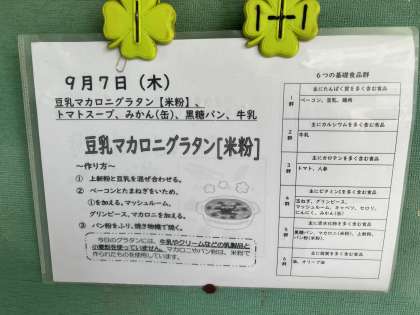 1-1
9月7日（木）
豆乳マカロニグラタン【米粉】、
トマトスープ、みかん(缶)、黒糖パン、牛乳
豆乳マカロニグラタン[米粉]
～作り方～
① 上新粉と豆乳を混ぜ合わせる。
② ベーコンとたまねぎをいため、
①を加える。マッシュルーム、
グリンピース、マカロニを加える。
③ パン粉をふり、焼き物機で焼く。
今日のグラタンには、牛乳やクリームなどの乳製品と
小麦粉を使っていません。マカロニやパン粉は、米粉で
作られたものを使用しています。
6つの基礎食品群
主にたんぱく質を多く含む食品
1群
ベーコン、豆乳、鶏肉
主にカルシウムを多く含む食品
2群
牛乳
主にカロテンを多く含む食品
3群
トマト、人参
主にビタミンCを多く含む食品
4群
玉ねぎ、グリンピース、
マッシュルーム、キャベツ、セロリ、
にんにく、みかん(缶)
主に炭水化物を多く含む食品
5群
黒糖パン、マカロニ(米粉)、上新粉、
パン粉(米粉)、
主に脂質を多く含む食品
6群
油、オリーブ油